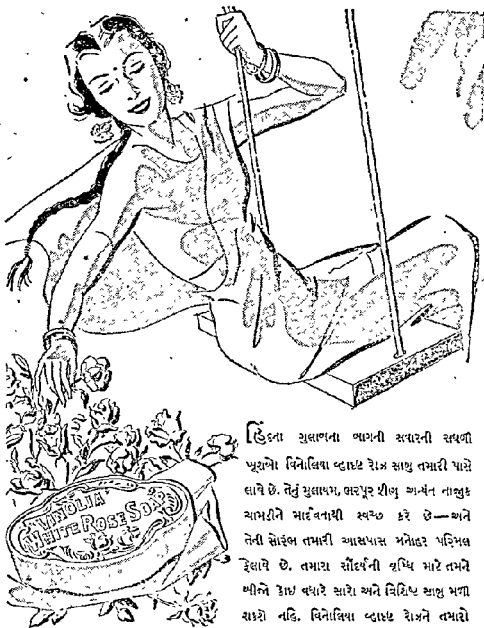 VINOLIA
WHITE ROSE SOAP
હિંદના ગુલાબના બાગની સવારની સઘળી
ખૂશબો વિનોલિયા વ્હાઇટ રોઝ સાબુ તમારી પાસે
લાવે છે. તેનું મુલાયમ, ભરપૂર ફીણ અત્યંત નાજુક
ચામડીને માર્દવતાથી સ્વચ્છ કરે છે—અને
તેની સોરંભ તમારી આસપાસ મનોહર પરિમલ
ફેલાવે છે. તમારા સૌંદર્યની વૃધ્ધિ માટે તમને
બીજો કોઇ વધારે સારો અને વિશિષ્ટ સાબુ મળી
શકશે નહિ. વિનોલિયા વ્હાઇટ રોઝને તમારો